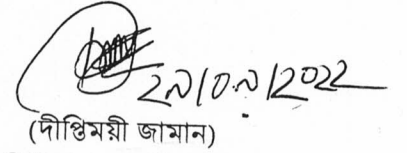 ২৯/০৯/২০২২
(দীপ্তিময়ী জামান)